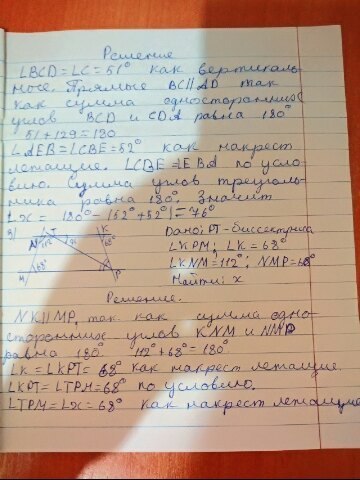 Решение
∠BCD = ∠C = 51° как вертикаль-
ные. Прямые BC∥AD так
как сумма односторонних
углов BCD и CDA равна 180°
51+129=180
∠AEB=∠CBE=52° как накрест
летащие. ∠CBE=∠EBA по усло-
вию. Сумма углов треуголь-
ника равна 180°. Значит
∠x = 180° - (52°+52°) = 76°
Дано: PT - биссектриса
∠KPM; ∠K = 68°
∠KNM = 112°; NMP = 68°
Найти: x
Решение.
NK∥MP, так как сумма одно-
сторонних углов KNM и NMP
равна 180° 112°+68°=180°
∠K = ∠KPT = 68° как накрест летащие.
∠KPT = ∠TPM = 68° по условию.
∠TPM = ∠x = 68° как накрест летащие